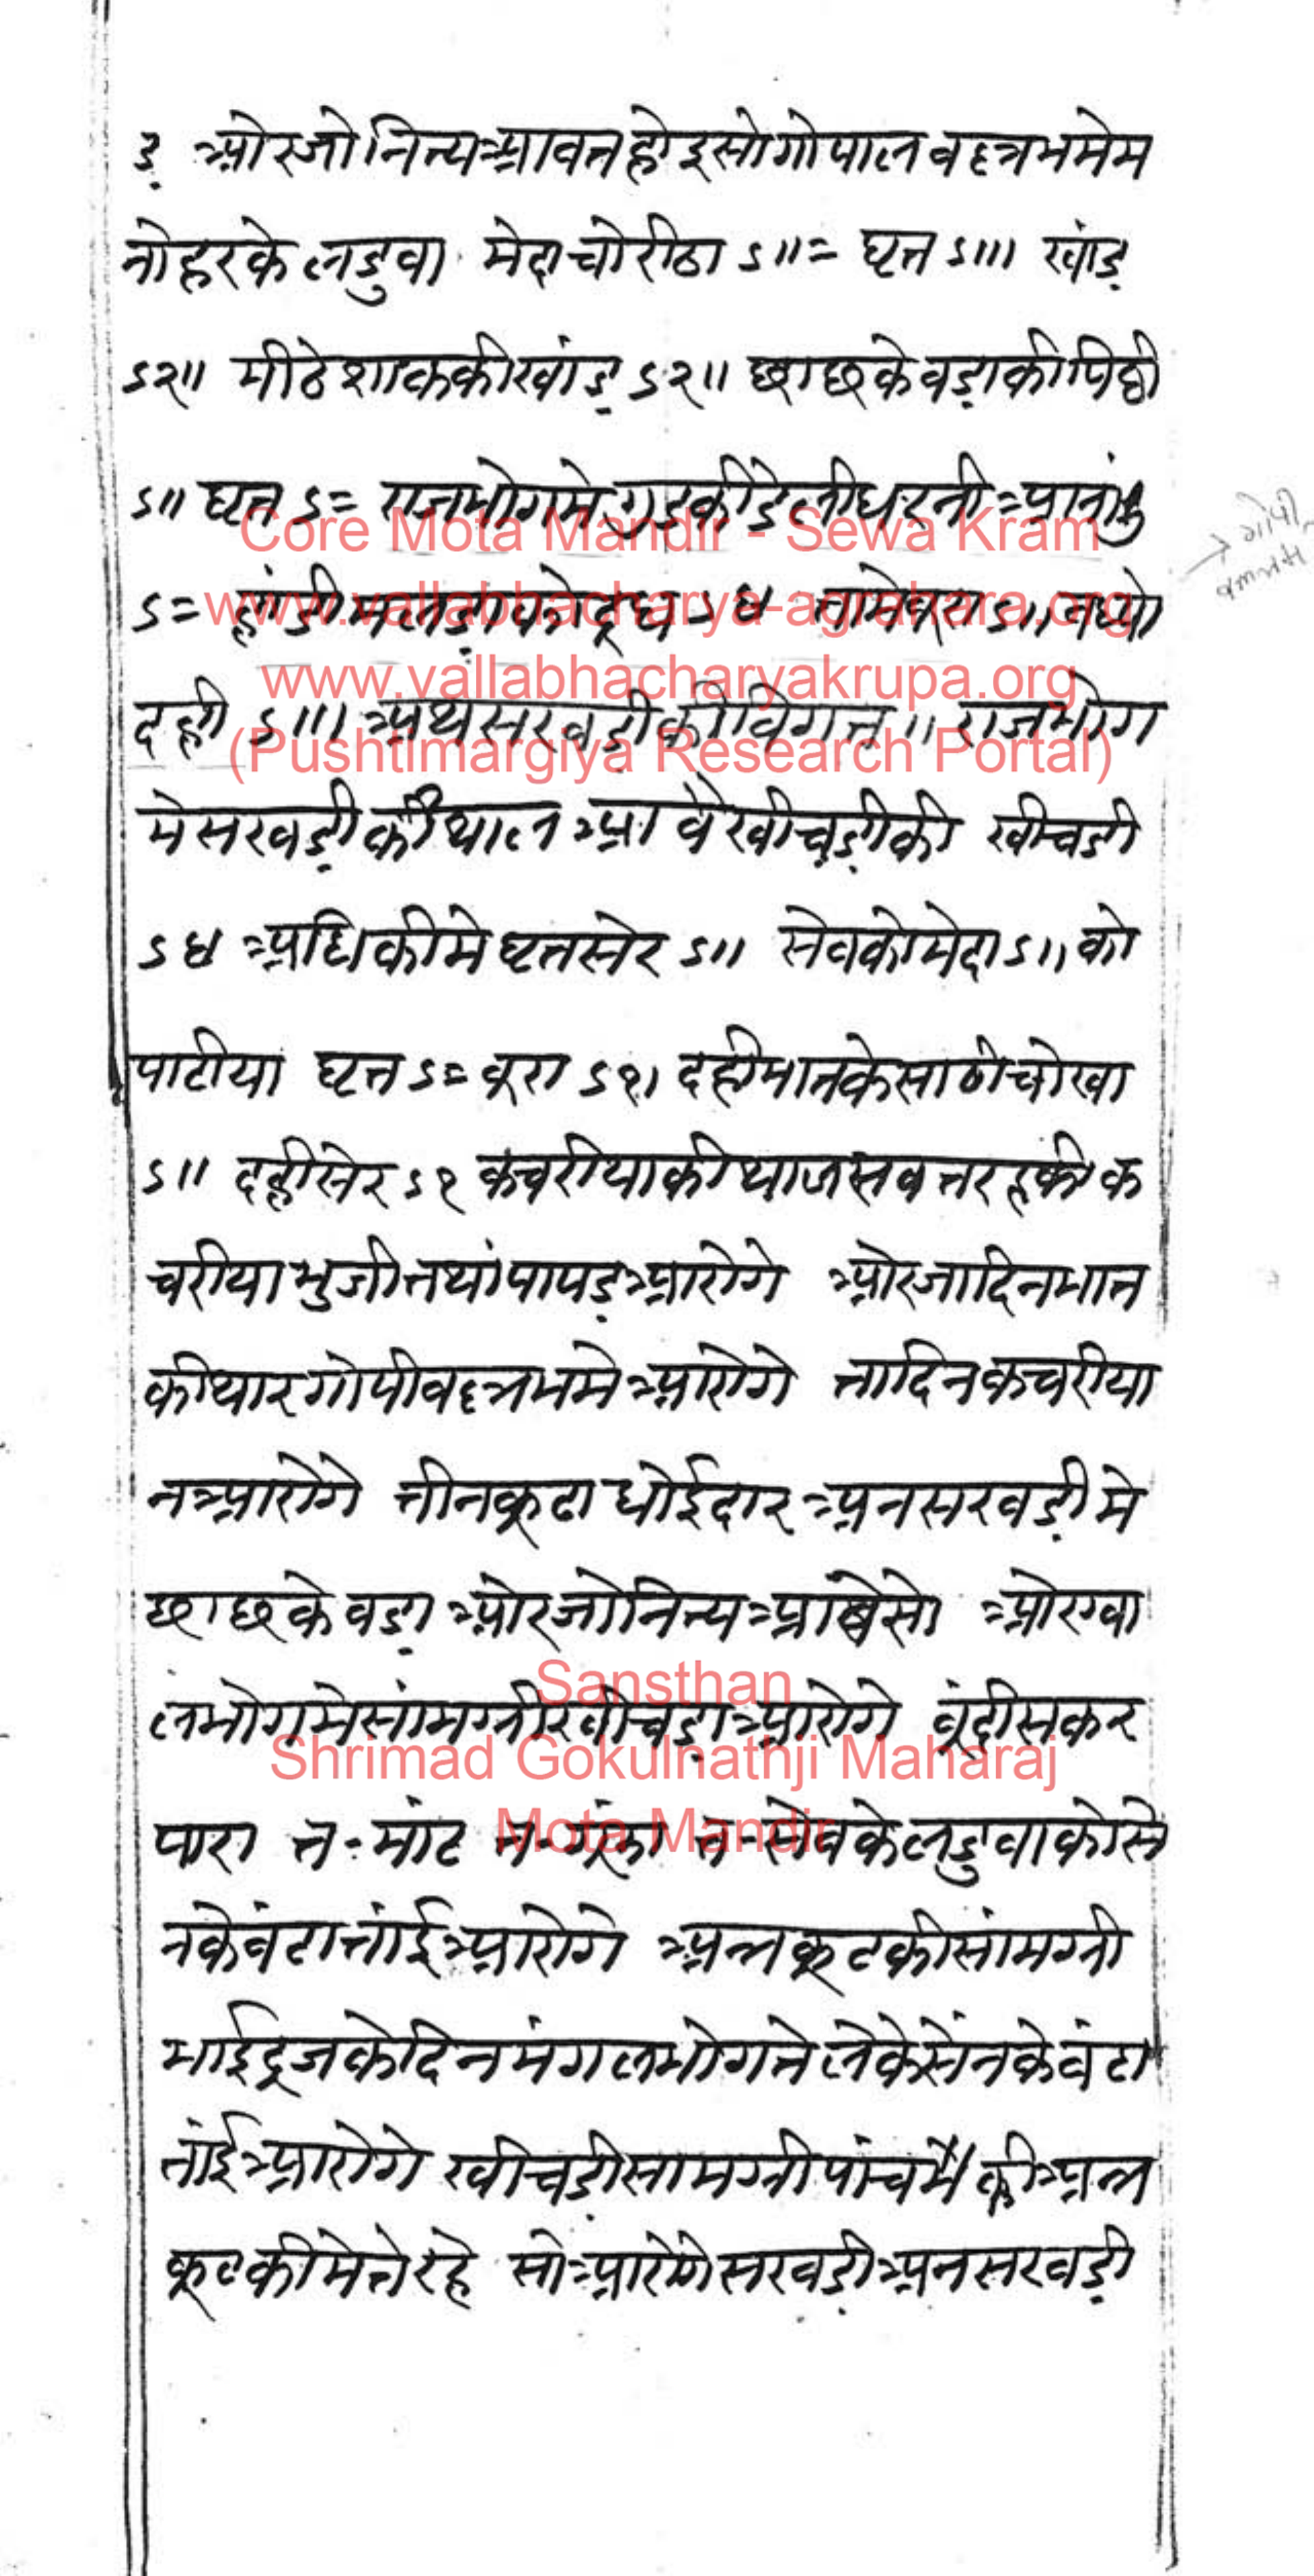 ड़ ओरजोनित्यआवतहोइसोगोपालवल्लभमेम
नोहरकेलडुवा मेदाचोरीठा ऽ॥= घृत ऽ॥। खांड़
ऽ२॥ मीठेशाककीखांड़ ऽ२॥ छाछकेवड़ाकीपिठी
ऽ॥ घृत ऽ= राजभोगमे
→ गोपी
वल्लभ
ऽ=
दही ऽ॥। अथसखड़ीकीविगत॥ राजभोग
मेसखड़ीकीथालआवेखीचड़ीकी खीचडी
ऽ४ अधिकीमेघृतसेर ऽ॥ सेवकोमेदा ऽ॥ को
पाटीया घृत ऽ= बूरा ऽ१। दहीभातकेसाठीचोखा
ऽ॥ दहीसेर ऽ१ कचरीयाकीथालसबतरहकीक
चरीयाभुजीतथांपापड़आरोगे ओरजादिनभात
कीथारगोपीवल्लभमेआरोगे तादिनकचरीया
नआरोगे तीनकूढाधोईदारअनसखड़ीमे
छाछकेवड़ा ओरजोनित्यआवेसो ओरग्वा
लभोगमेसांमग्रीखीचड़ाआरोगे बूंदीसकर
पारा त॰मांट सेवकेलडुवाकोसे
नकेबंटातांईआरोगे अन्नकूटकीसांमग्री
भाईदूजकेदिनमंगलभोगतेलेकेसेंनकेबंटा
तांईआरोगे खीचड़ीसामग्रीपांचमेंकीअन्न
कूटकीमेतेरहे सोआरोगेसखड़ीअनसखड़ी
Core Mota Mandir - Sewa Kram
www.vallabhacharya-agrahara.org
www.vallabhacharyakrupa.org
(Pushtimargiya Research Portal)
Sansthan
Shrimad Gokulnathji Maharaj
Mota Mandir